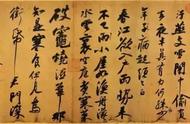 汙燕支雪闇中偷負
去夜半真有力何殊少
年子病起頭已白
春江欲入戶雨勢來
不已雨小屋如漁舟濛濛
水雲裏空庖煮寒菜
破竈燒濕葦那
知是寒食但見烏
銜帋君門深